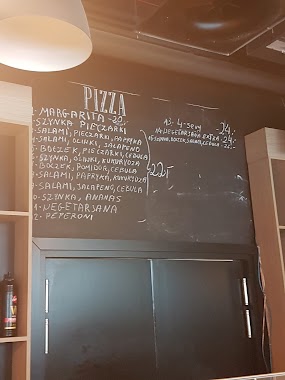 PIZZA
1-MARGARITA-20-
2-SZYNKA PIECZARKI
3-SALAMI, PIECZARKI, PAPRYKA
4-SALAMI, OLIWKI, JALAPENO
5-BOCZEK, PIECZARKI, CEBULA
6-SZYNKA, OLIWKI, KUKURYDZA
7-BOCZEK, POMIDOR, CEBULA
8-SALAMI, PAPRYKA, KUKURYDZA
9-SALAMI, JALAPENO, CEBULA
0-SZYNKA, ANANAS
1-WEGETARIANA
2-PEPERONI
22-
13-4-SERY 24,-
14 WEGETARIANA EXTRA 24,-
BOCZEK, SALAMI, CEBULA